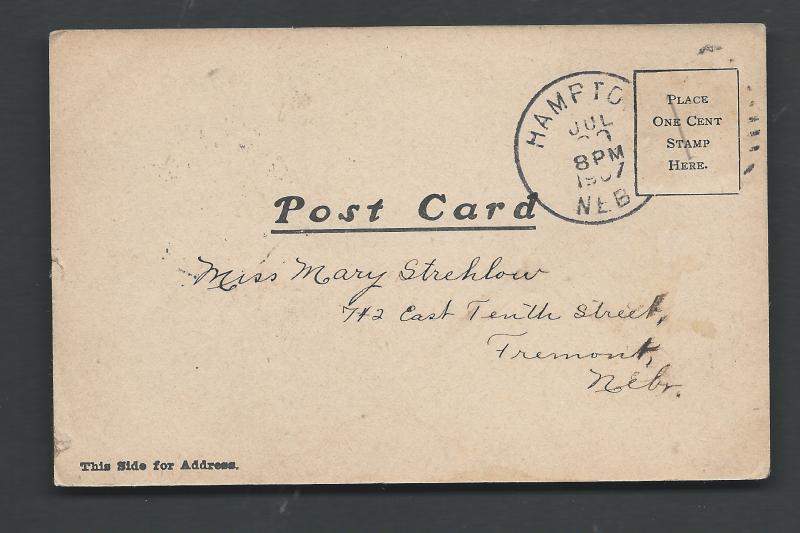 HAMPTO
JUL
8 PM
1907
NEB
PLACE
ONE CENT
STAMP
HERE.
Post Card
Miss Mary Strehlow
742 East Tenth Street,
Fremont,
Nebr.
This Side for Address.